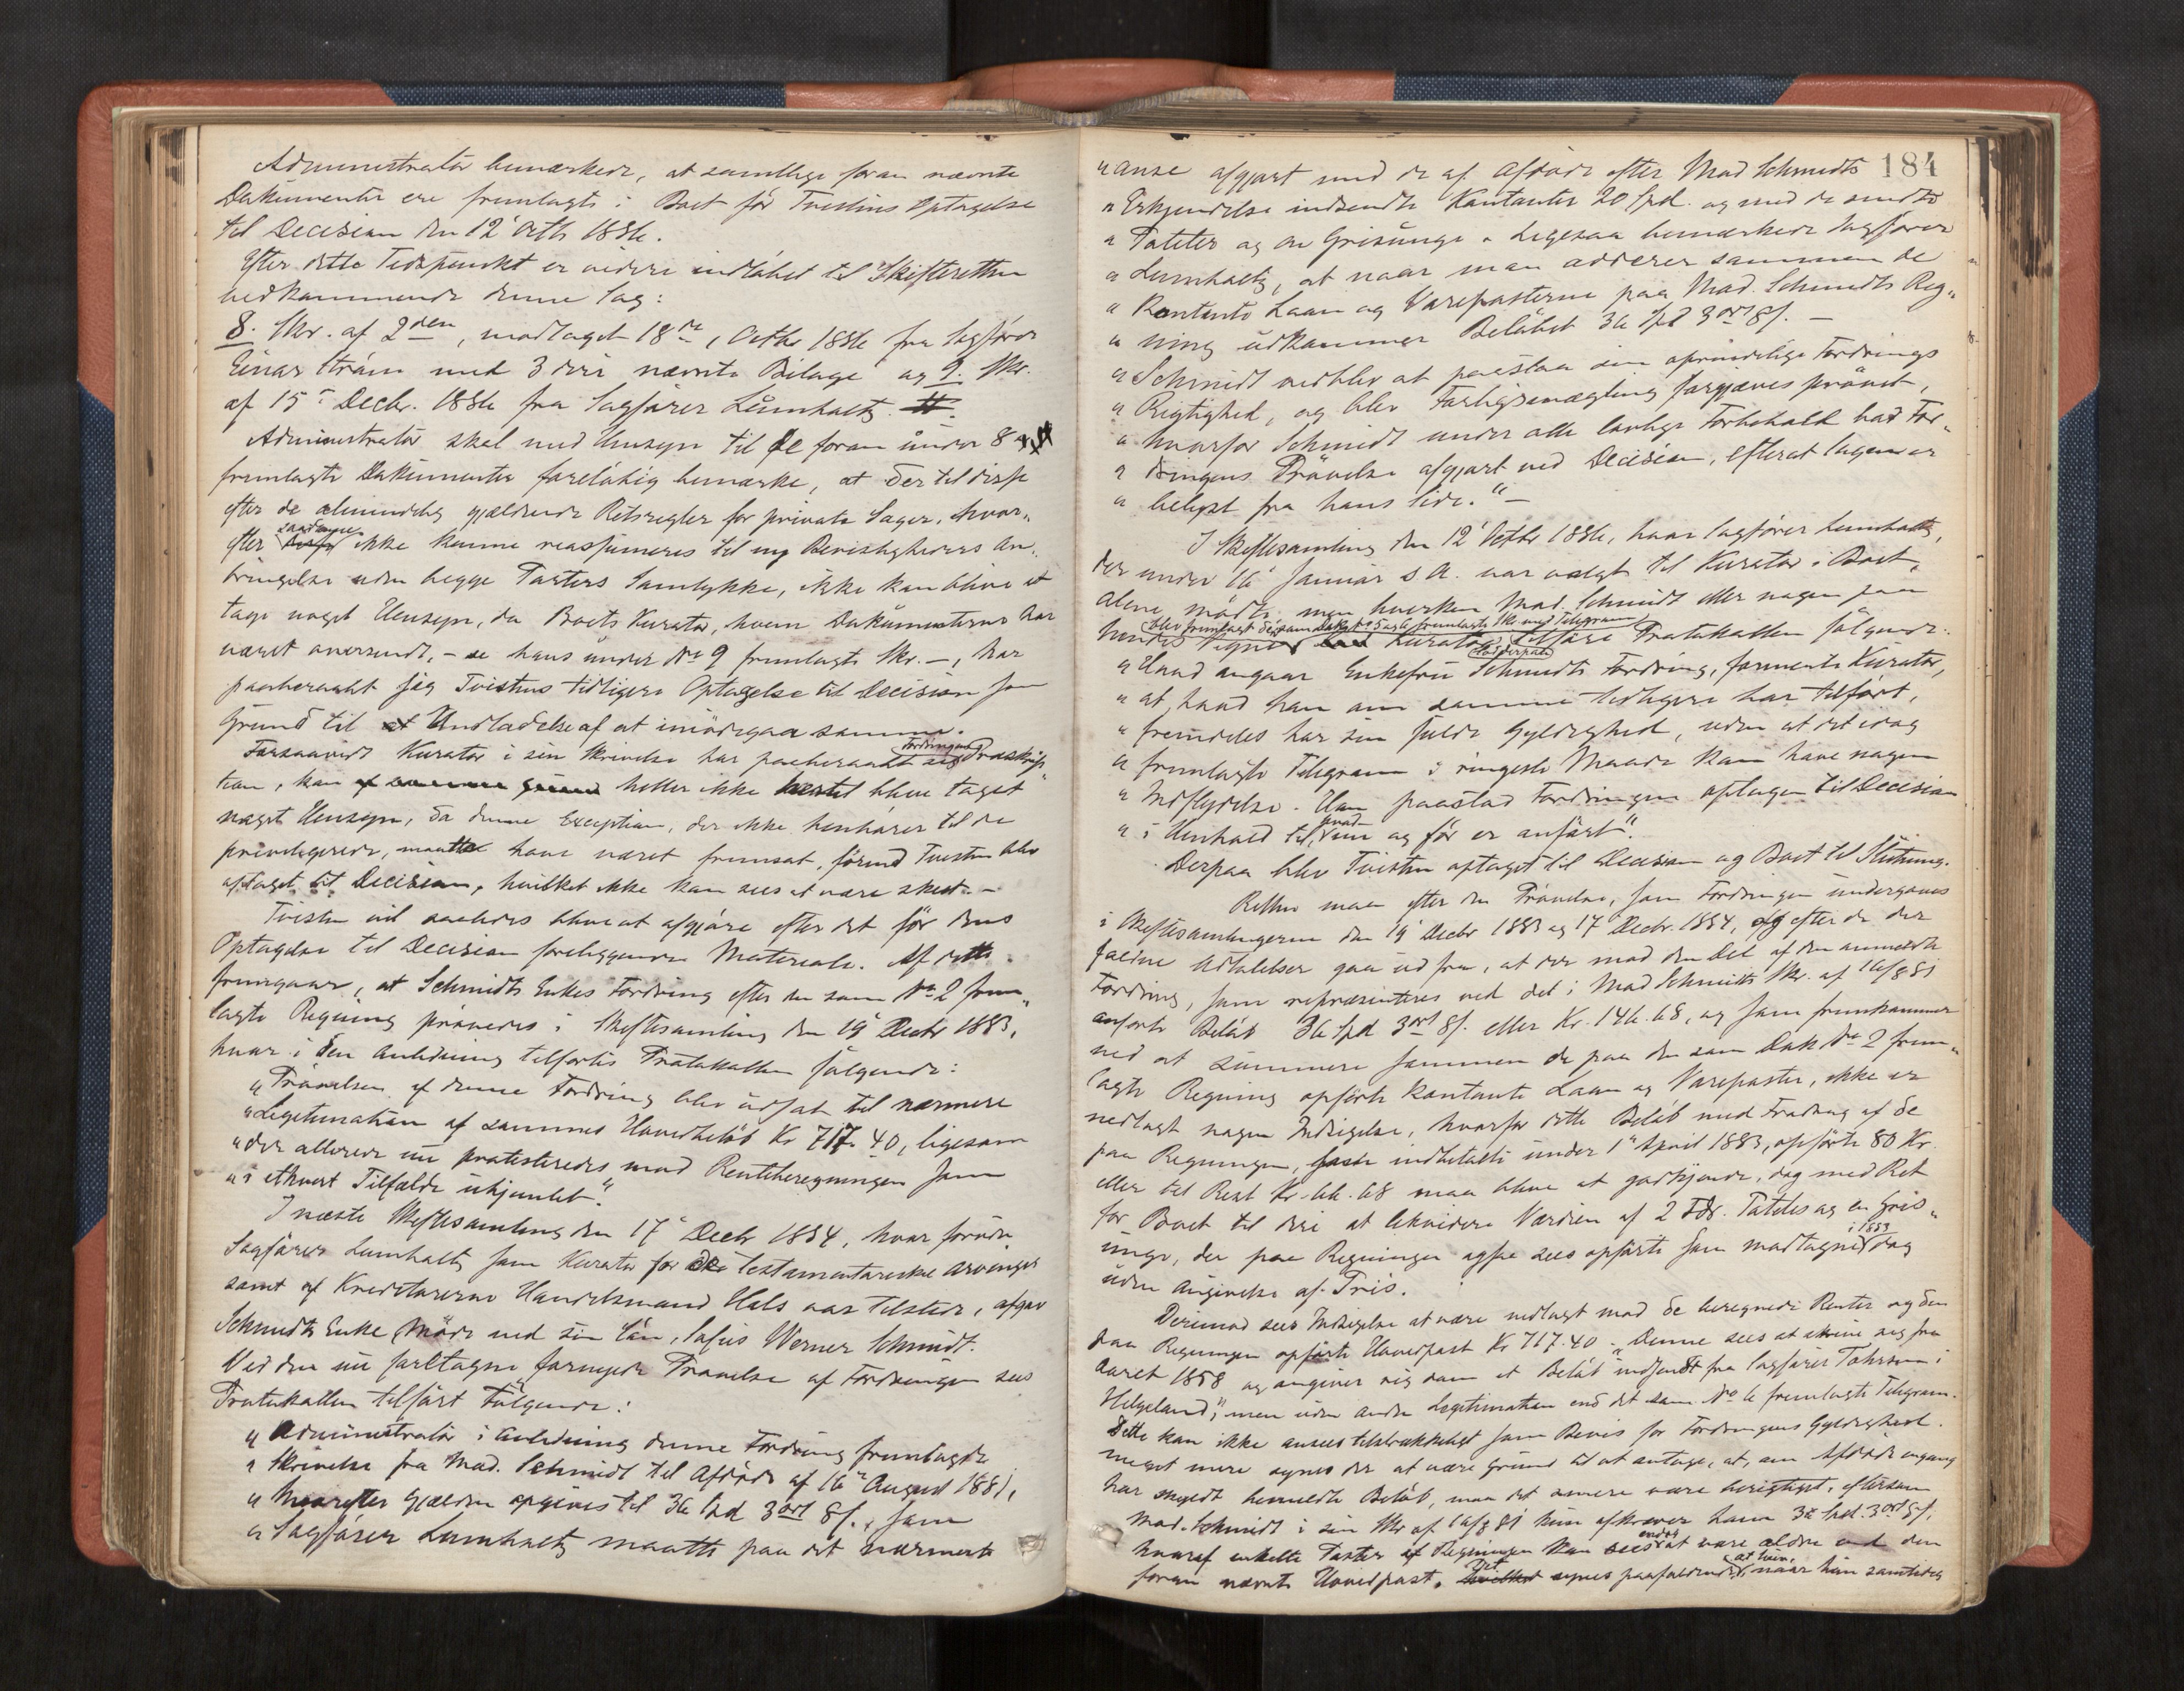 Administrator bemærkede, at samtlige foran nævnte
Dokumenter ere fremlagte i Boet før Tvistens Optagelse
til Decision den 12' Octb 1886.
Efter dette Tidspunkt er videre indløbet til Skifteretten
vedkommende denne Sag:
8. Skr. af 2den, modtaget 18de, Octbr 1886 fra Sagfører
Einar Strøm med 3 deri nævnte Bilage og 9. Skr.
af 15' Decbr. 1886 fra Sagfører Lumholtz.
Administrator skal med Hensyn til de foran under 8
fremlagte Dokumenter foreløbig bemærke, at der til disse
efter de almindelig gjældende Retsregler for private Sager, hvor„
efter saadanne ikke kunne reassumeres til ny Bevisligheders An„
bringelse uden begge Parters Samtykke, ikke kan blive at
tage noget Hensyn, da Boets Kurator, hvem Dokumenterne har
været oversendt, – se hans under No 9 fremlagte Skr. –, har
paaberaabt sig Tvistens tidligere Optagelse til Decision som
Grund til Undladelse af at imødegaa samme.
Forsaavidt Kurator i sin Skrivelse har paaberaabt sig Fordringens Præskrip„
tion, kan heller ikke hertil blive taget
noget Hensyn, da denne Exception, der ikke henhører til de
privilegerede, maatte have været fremsat, førend Tvisten blev
optaget til Decision, hvilket ikke kan sees at være skeet. –
Tvisten vil saaledes blive at afgjøre efter det før dens
Optagelse til Decision foreliggende Materiale. Af dette
fremgaar, at Schmidts Enkes Fordring efter den som No 2 frem„
lagte Regning prøvedes i Skiftesamling den 19' Decbr 1883,
hvor i den Anledning tilførtes Protokollen følgende:
„Prøvelsen af denne Fordring blev udsat til nærmere
„Legitimation af sammes Hovedbeløb Kr 717.40, ligesom
„der allerede nu protesteredes mod Renteberegningen som
„i ethvert Tilfælde uhjemlet."
I næste Skiftesamling den 17' Decbr 1884, hvor foruden
Sagfører Lumholtz som Kurator for de testamentariske Arvinger
samt af Kreditorerne Handelsmand Hals var tilstede, afgav
Schmidts Enke Møde ved sin Søn, Werner Schmidt.
Ved den nu foretagne fornyede Prøvelse af Fordringen sees
Protokollen tilført Følgende:
„Administrator i Anledning denne Fordring fremlagde
„Skrivelse fra Mad. Schmidt til Afdøde af 16' August 1881,
„hvorefter Gjælden opgives til 36 Spd 3 ort 8 s., som
„Sagfører Lumholtz maatte paa det nærmeste
184
„anse afgjort med de af Afdøde efter Mad Schmidts
„Erkjendelse indsendte Kontanter 20 Spd. og med de sendte
„Poteter og en Grisunge. Ligesaa bemærkede Sagfører
„Lumholtz, at naar man adderer sammen de
„kontante Laan og Vareposterne paa Mad. Schmidts Reg„
„ning udkommer Beløbet 36 Spd 3 ort 8 s. –
„Schmidt vedblev at paastaa sin oprindelige Fordrings
„Rigtighed, og blev Forligsmægling forgjæves prøvet,
„hvorfor Schmidt under alle lovlige Forbehold bad For„
„dringens Prøvelse afgjort ved Decision, efterat Sagen er
„belyst fra hans Side." –
I Skiftesamling den 12' Octbr 1886, hvor Sagfører Lumholtz,
der under 16' Januar s A. var valgt til Kurator i Boet,
alene mødte, men hverken Mad. Schmidt eller nogen paa
hendes Vegne, blev fremlagt de som Dokt No 5 og 6 fremlagte Skr med Telegram
Kurator lod derpaa tilføre Protokollen følgende:
„Hvad angaar Enkefru Schmidts Fordring, formente Kurator,
„at, hvad han om samme tidligere har tilført,
„fremdeles har sin fulde Gyldighed, uden at det idag
„fremlagte Telegram i ringeste Maade kan have nogen
„Indflydelse. Han paastod Fordringen optagen til Decision
„i Henhold til, hvad nu og før er anført."
Derpaa blev Tvisten optaget til Decision og Boet til Slutning.
Retten maa efter den Prøvelse, som Fordringen undergaves
i Skiftesamlingerne den 19' Decbr 1883 og 17' Decbr. 1884, og efter de der
faldne Udtalelser gaa ud fra, at der mod den Del af den anmeldte
Fordring, som repræsenteres ved det i Mad Schmidts Skr. af 16/8 81
anførte Beløb 36 Spd 3 ort 8 s. eller Kr. 146.68, og som fremkommer
ved at summere sammen de paa den som Dok No 2 frem„
lagte Regning opførte kontante Laan og Vareposter, ikke er
nedlagt nogen Indsigelse, hvorfor dette Beløb med Fradrag af de
paa Regningen, som indbetalte under 1' April 1883, opførte 80 Kr.
eller til Rest Kr. 66.68 maa blive at godkjende, dog med Ret
for Boet til deri at likvidere Værdien af 2 Tdr. Poteter og en Gris„
unge, der paa Regningen ogsaa sees opførte som modtagne i 1883 dog
uden Angivelse af Pris.
Derimod sees Indsigelse at være nedlagt mod de beregnede Renter og den
paa Regningen opførte Hovedpost Kr 717.40. Denne sees at skrive sig fra
Aaret 1858 og angiver sig som et Beløb „indsendt fra Sagfører i
Helgeland," men uden anden Legitimation end det som No 6 fremlagte Telegram.
Dette kan ikke ansees tilstrækkeligt som Bevis for Fordringens Gyldighed.
meget mere synes der at være Grund til at antage, at, om Afdøde engang
har skyldt bemeldte Beløb, maa det senere være berigtiget, eftersom
Mad. Schmidt i sin Skr af 16/8 81 kun afkræver ham 36 Spd. 3 ort 8 s,
hvoraf enkelte Poster af Regningen kan sees endog at være ældre end den
foran nævnte Hovedpost. Det synes paafaldende, at hun, naar hun samtidig